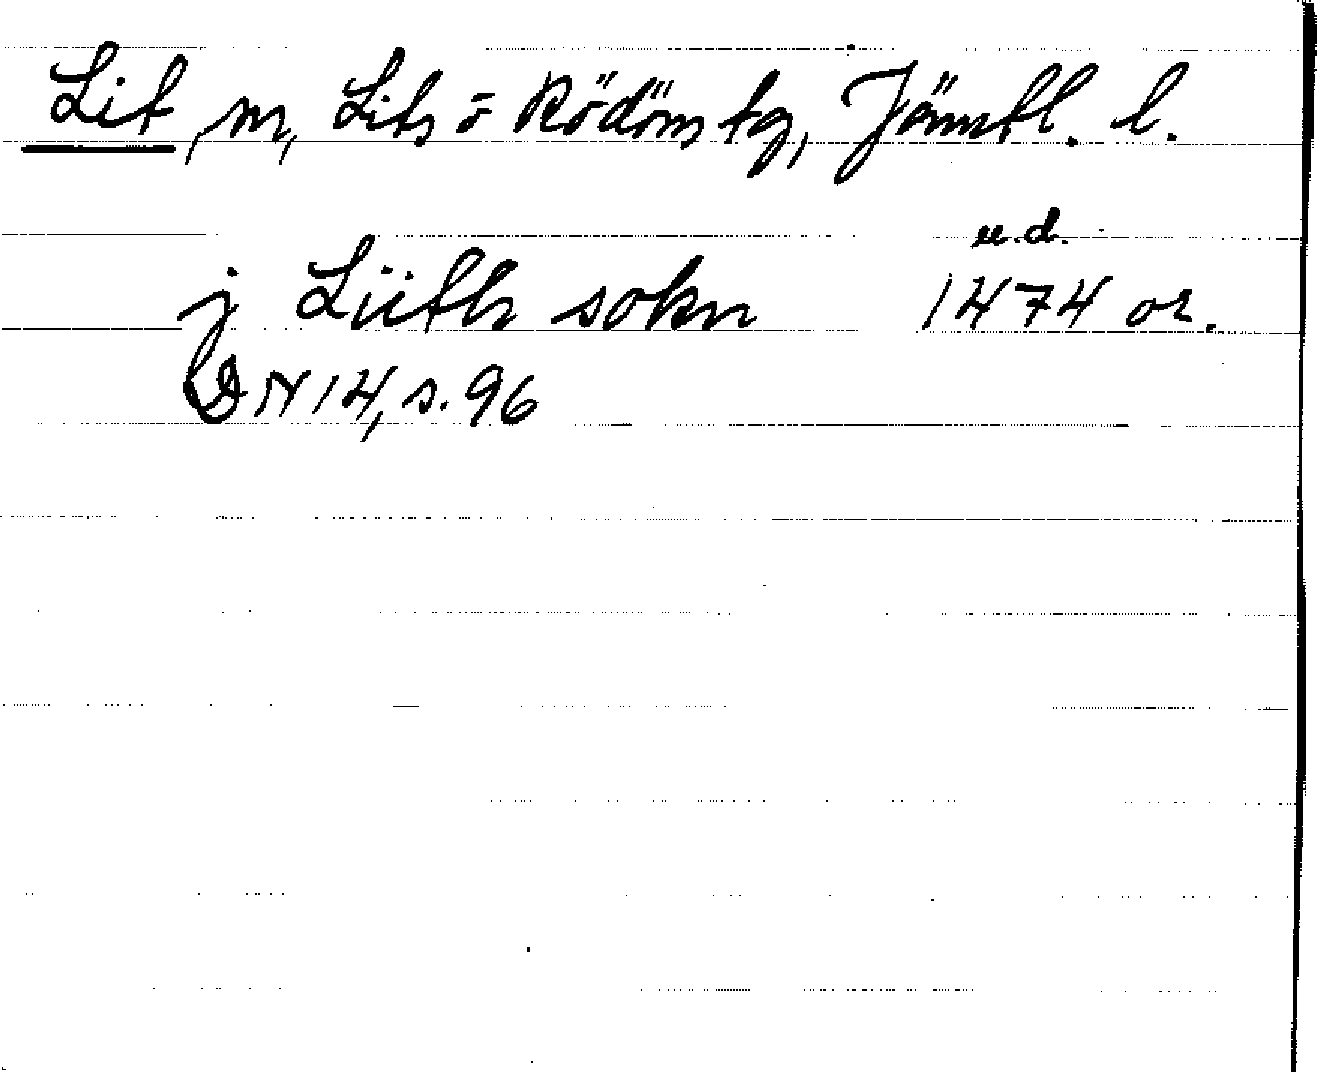 Lit, sn, Lits o Rödöns tg, Jämtl. l.
u.d.
j Lüths sokn 1474 or.
DN 14, s. 96